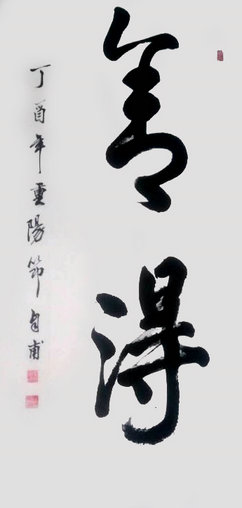 舍得
丁酉年重陽節自甫